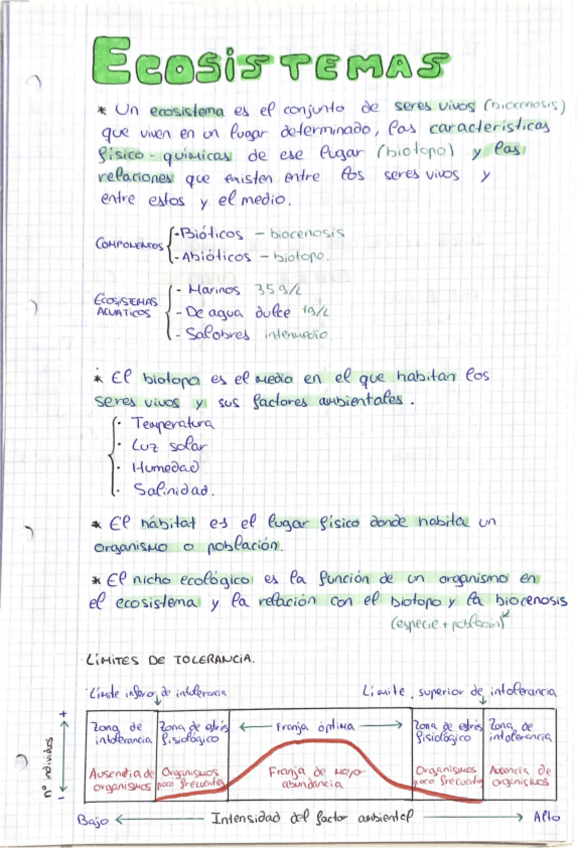 ECOSISTEMAS
* Un ecosistema es el conjunto de seres vivos (biocenosis)
que viven en un lugar determinado, las características
físico-químicas de ese lugar (biotopo) y las
relaciones que existen entre los seres vivos y
entre estos y el medio.
COMPONENTES
- Bióticos - biocenosis
- Abióticos - biotopo.
ECOSISTEMAS
ACUÁTICOS
- Marinos 35 g/L
- De agua dulce 1g/L
- Salobres intermedio
* El biotopo es el medio en el que habitan los
seres vivos y sus factores ambientales.
· Temperatura
· Luz solar
· Humedad
· Salinidad.
* El hábitat es el lugar físico donde habita un
organismo o población.
* El nicho ecológico es la función de un organismo en
el ecosistema y la relación con el biotopo y la biocenosis
(especie + población)
LÍMITES DE TOLERANCIA.
Límite inferior de intolerancia
Límite superior de intolerancia
Zona de
intolerancia
Zona de estrés
fisiológico
Franja óptima
Zona de estrés
fisiológico
Zona de
intolerancia
Ausencia de
organismos
Organismos
poco frecuentes
Franja de mayor
abundancia
Organismos
poco frecuentes
Ausencia de
organismos
nº individuos
+
-
Bajo
Intensidad del factor ambiental
Alto